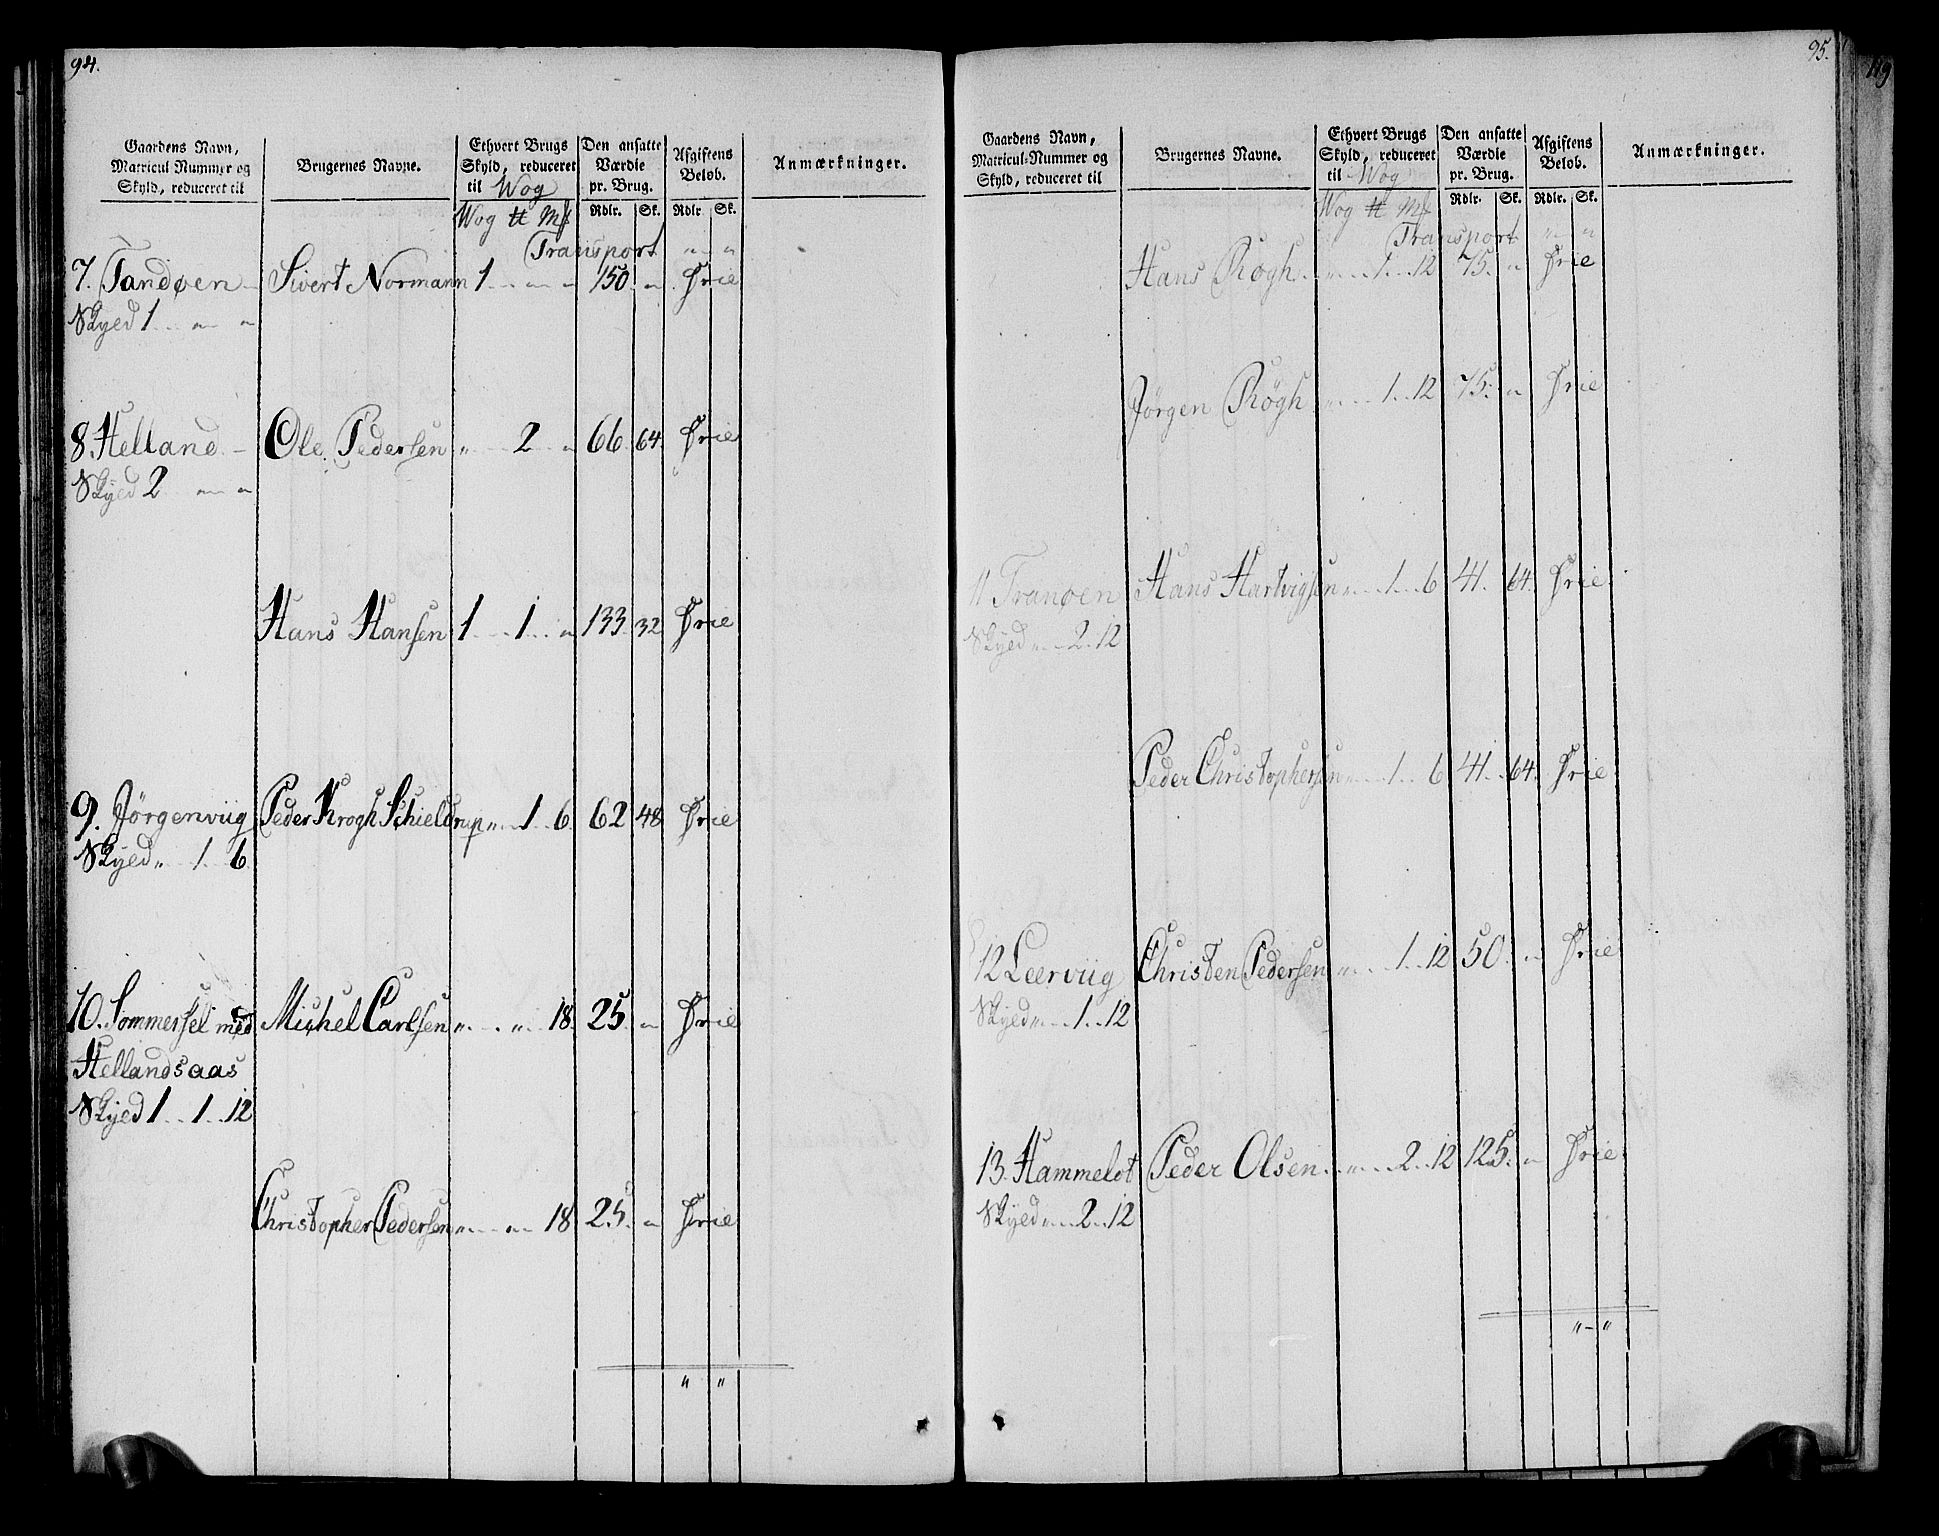 94.
Gaardens Navn, Matricul Nummer og Skyld, reduceret til
Brugernes Navne.
Ethvert Brugs Skyld, reduceret til Wog
Den ansatte Værdie pr. Brug.
Afgiftens Beløb.
Anmærkninger.
Wog ℔ Mk Rdlr. Sk. Rdlr Sk.
Transport " "
7. Tandøen Sivert Normann 1 " " 150 " Frie
Skyld 1 " "
8. Helland Ole Pedersen " 2 " 66 64 Frie
Skyld 2 " "
Hans Hansen 1 1 " 133 32 Frie
9. Jørgenviig Peder Krogh Schieldrup " 1 6 62 48 Frie
Skyld " 1 6
10. Sommersel med Michel Carlsen " " 18 25 " Frie
Hellandsaas
Skyld 1 1 12
Christopher Pedersen " " 18 25 " Frie
" "
95.
119
Gaardens Navn, Matricul-Nummer og Skyld, reduceret til
Brugernes Navne.
Ethvert Brugs Skyld, reduceret til Wog
Den ansatte Værdie pr. Brug.
Afgiftens Beløb.
Anmærkninger.
Wog ℔ Mk Rdlr. Sk. Rdlr. Sk.
Transport " "
Hans Røgh " 1 12 75 " Frie
Jörgen Rögh " 1 12 75 " Frie
11 Tranøen Hans Hartvigsen " 1 6 41 64 Frie
Skyld " 2 12
Peder Christophersen " 1 6 41 64 Frie
12 Leerviig Christen Pedersen " 1 12 50 " Frie
Skyld " 1 12
13. Hammelot Peder Olsen " 2 12 125 " Frie
Skyld " 2 12
" - "